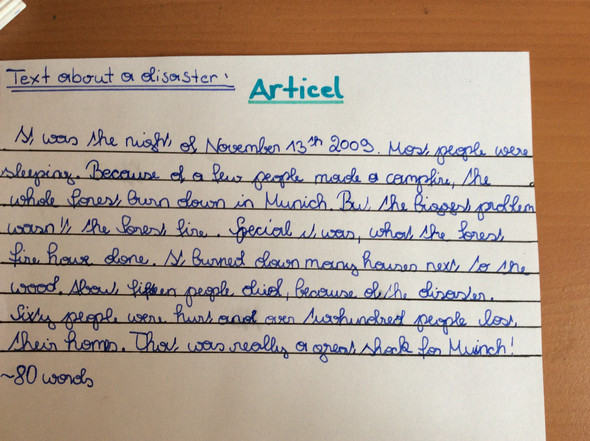 Text about a disaster:
Articel
It was the night of November 13th 2009. Most people were
sleeping. Because of a few people made a campfire, the
whole forest burn down in Munich. But the biggest problem
wasn't the forest fire. Special it was, what the forest
fire have done. It burned down many houses next to the
wood. About fifteen people died, because of the disaster.
Sixty people were hurt and over twohundred people lost
their homes. That was really a great shock for Muinch!
~80 words